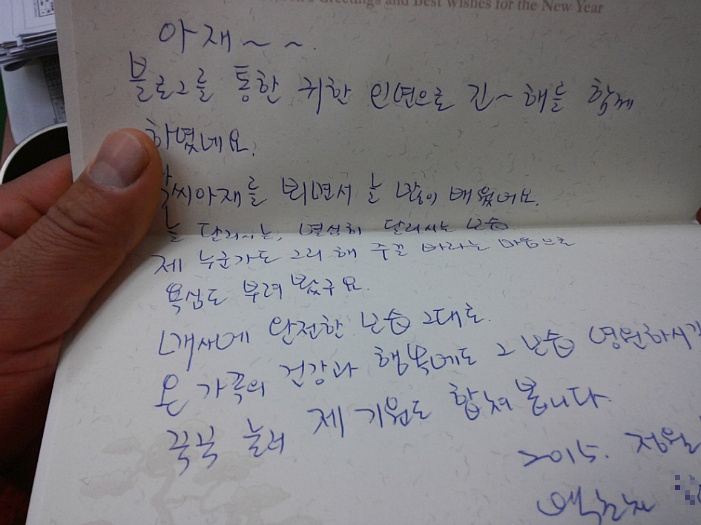 Greetings and Best Wishes for the New Year
아재~~.
블로그를 통한 귀한 인연으로 긴~해를 함께
하였네요.
씨아재를 뵈면서 늘 많이 배웠네요.
늘 달리시는, 열심히 달리시는 모습
제 누군가도 그리 해 주길 바라는 마음으로
욕심도 부려 봤구요.
안전한 모습 그대로
온 가족의 건강과 행복에도 그 모습 영원하시길
꾹꾹 눌러 제 기원도 합쳐 봅니다
2015. 정월